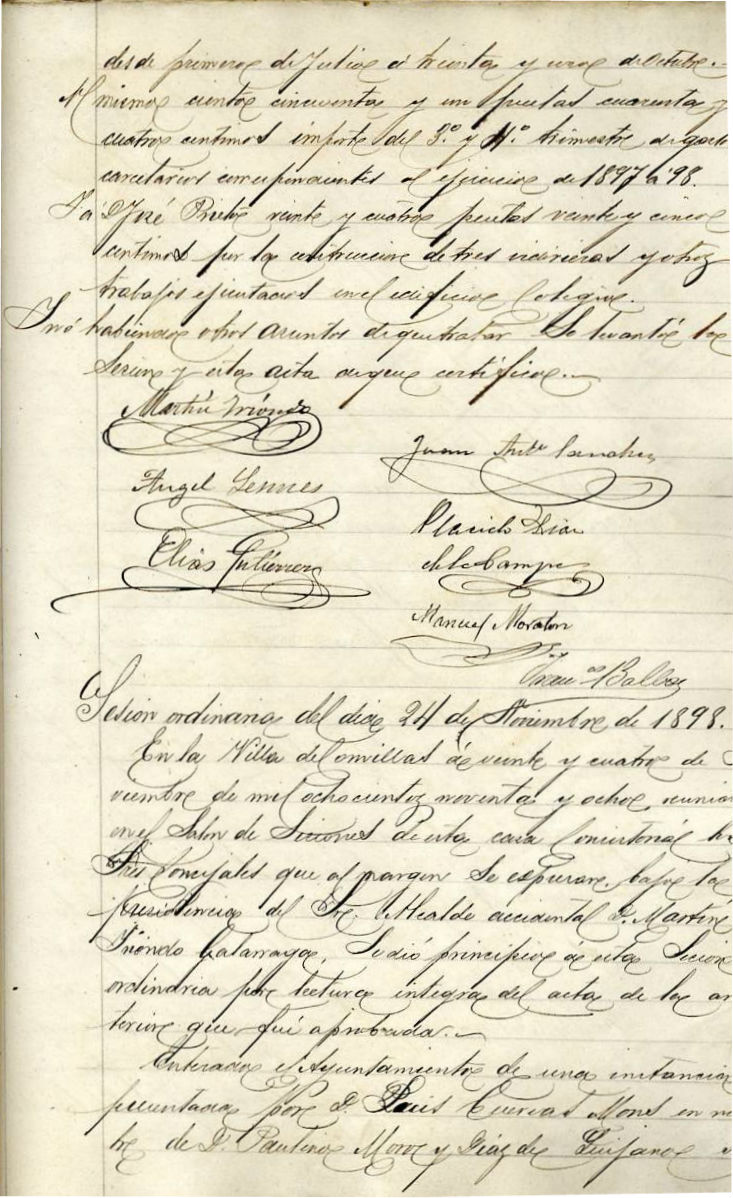 desde primero de Julio á treinta y uno de Octubre.
Al mismo ciento cincuenta y un pesetas cuarenta y
cuatro centimos importe del 3.º y 4.º trimestre de gasto
carcelarios correspondientes al ejercicio de 1897 a 98.
Y á D José Prieto veinte y cuatro pesetas veinte y cinco
centimos por la costruccion de tres vidrieras y otroz
trabajos ejecutados en el edificio Colegio.
Y nó habiendo otros asuntos de que tratar Se levantó la
Sesion y esta acta de que certifico.
Martin Iñiondo
Juan Antº Sanchez
Angel
Placido Diaz
de la Campa
Elias Gutiérrez
Manuel Moraton
Francº Balboa
Sesion ordinaria del dia 24 de Noviembre de 1898.
En la Villa de Comillas á veinte y cuatro de
viembre de mil ochocientoz noventa y ocho, reunido
en el Salon de Seciones de esta casa Consistorial lo
Sres Concejales que al margen Se espresan, bajo la
presidencia del Sr. Alcalde accidental D. Martin
Iñiondo Gatarraga, Se dió principio á esta Secion
ordinaria por lectura integra del acta de la an
terior que fué aprobada.
Enterado el Ayuntamiento de una instancia
presentada por D. Luis Cuevas Mons en no
bre de D. Paulino Moro y Diaz de Quijano